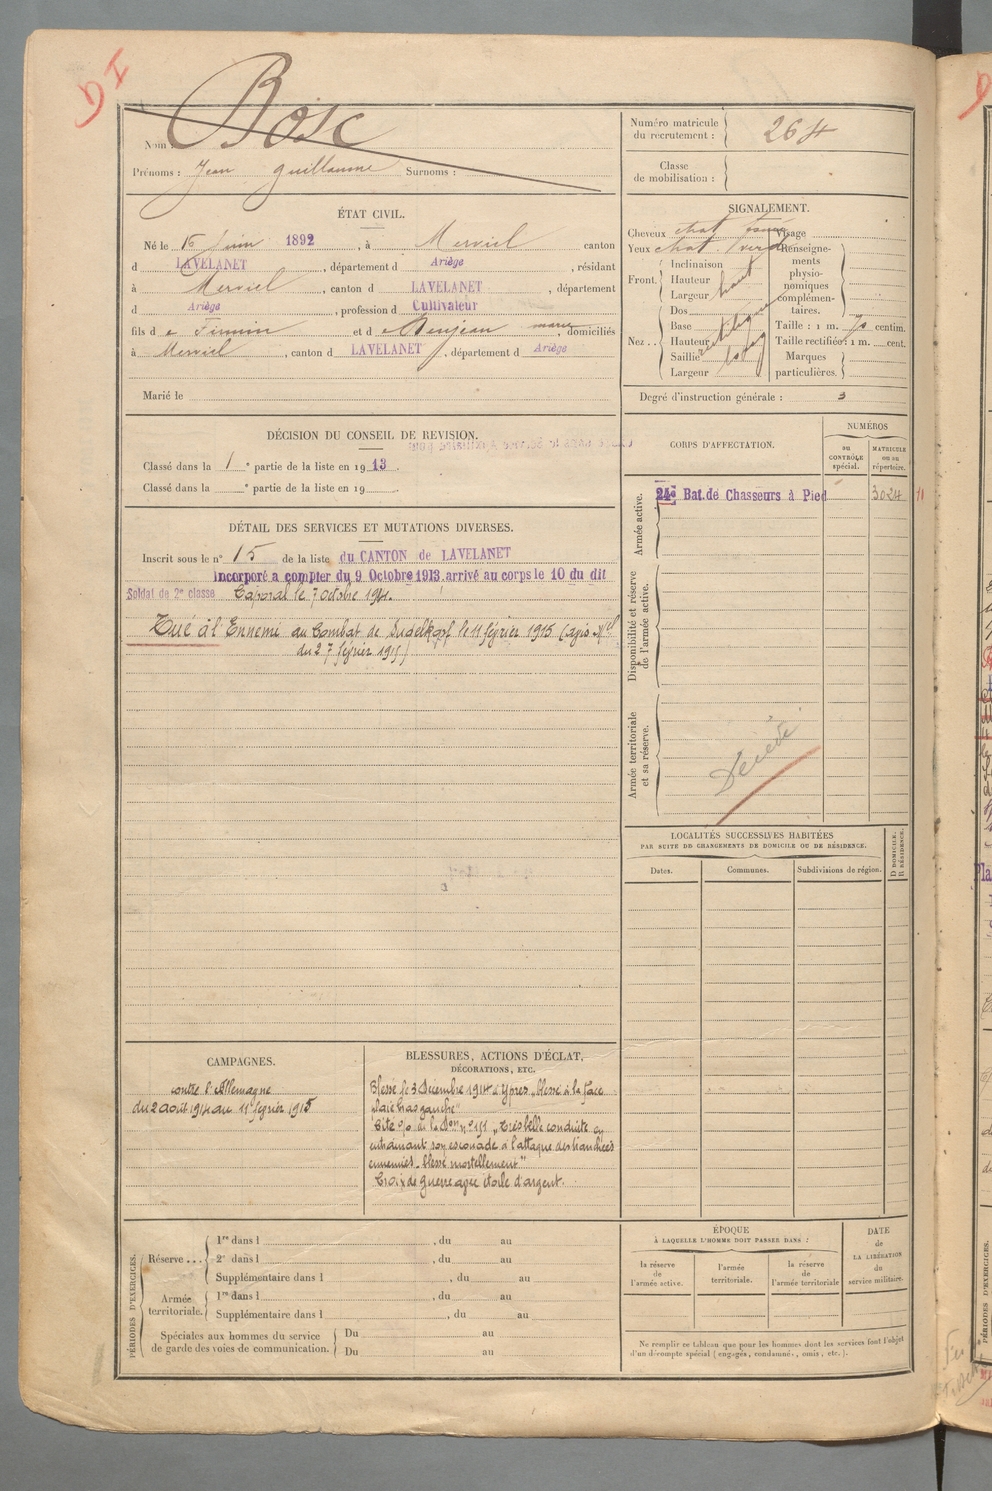 D I
Nom : Bosc
Prénoms : Jean Guillaume Surnoms :
Numéro matricule du recrutement : 264
Classe de mobilisation :
ÉTAT CIVIL.
Né le 16 Juin 1892, à Merviel canton
d LAVELANET, département d Ariège, résidant
à Merviel, canton d LAVELANET, département
d Ariège, profession d Cultivateur
fils de Firmin et de Benjean marie, domiciliés
à Merviel, canton d LAVELANET, département d Ariège
Marié le
SIGNALEMENT.
Cheveux chat. foncé
Yeux chat. verd
Front. Inclinaison
Hauteur haut
Largeur
Nez .. Dos
Base rectiligne
Hauteur
Saillie long
Largeur
Visage
Renseignements physionomiques complémentaires.
Taille : 1 m. 70 centim.
Taille rectifiée : 1 m. cent.
Marques particulières.
Degré d'instruction générale : 3
DÉCISION DU CONSEIL DE REVISION.
Classé dans la 1e partie de la liste en 1913.
Classé dans la e partie de la liste en 19
DÉTAIL DES SERVICES ET MUTATIONS DIVERSES.
Inscrit sous le n° 15 de la liste du CANTON de LAVELANET
Incorporé a compter du 9 Octobre 1913. arrivé au corps le 10 du dit
Soldat de 2e classe Caporal le 7 octobre 1914.
Tué à l'Ennemi au Combat de Sudelkopf le 11 février 1915 (avis Mel
du 27 février 1915)
CORPS D'AFFECTATION.
NUMÉROS
au CONTRÔLE spécial.
MATRICULE ou au répertoire.
Armée active.
24e Bat. de Chasseurs à Pied 3024
Disponibilité et réserve de l'armée active.
Armée territoriale et sa réserve.
Décédé
LOCALITÉS SUCCESSIVES HABITÉES
PAR SUITE DE CHANGEMENTS DE DOMICILE OU DE RÉSIDENCE.
Dates.
Communes.
Subdivisions de région.
D DOMICILE. R RÉSIDENCE.
CAMPAGNES.
contre l'Allemagne
du 2 août 1914 au 11 février 1915
BLESSURES, ACTIONS D'ÉCLAT,
DÉCORATIONS, ETC.
Blessé le 3 Décembre 1914 à Ypres „blessé à la face
plaie bras gauche"
Cité o/o de la Don n° 151 „Très belle conduite en
entraînant son escouade à l'attaque des tranchées
ennemies. blessé mortellement"
Croix de guerre avec étoile d'argent.
PÉRIODES D'EXERCICES.
Réserve ...
1re dans l , du au
2e dans l , du au
Supplémentaire dans l , du au
Armée territoriale.
1re dans l , du au
Supplémentaire dans l , du au
Spéciales aux hommes du service de garde des voies de communication.
Du au
Du au
ÉPOQUE
À LAQUELLE L'HOMME DOIT PASSER DANS :
la réserve de l'armée active.
l'armée territoriale.
la réserve de l'armée territoriale
DATE de LA LIBÉRATION du service militaire.
Ne remplir ce tableau que pour les hommes dont les services font l'objet
d'un décompte spécial (engagés, condamnés, omis, etc.).